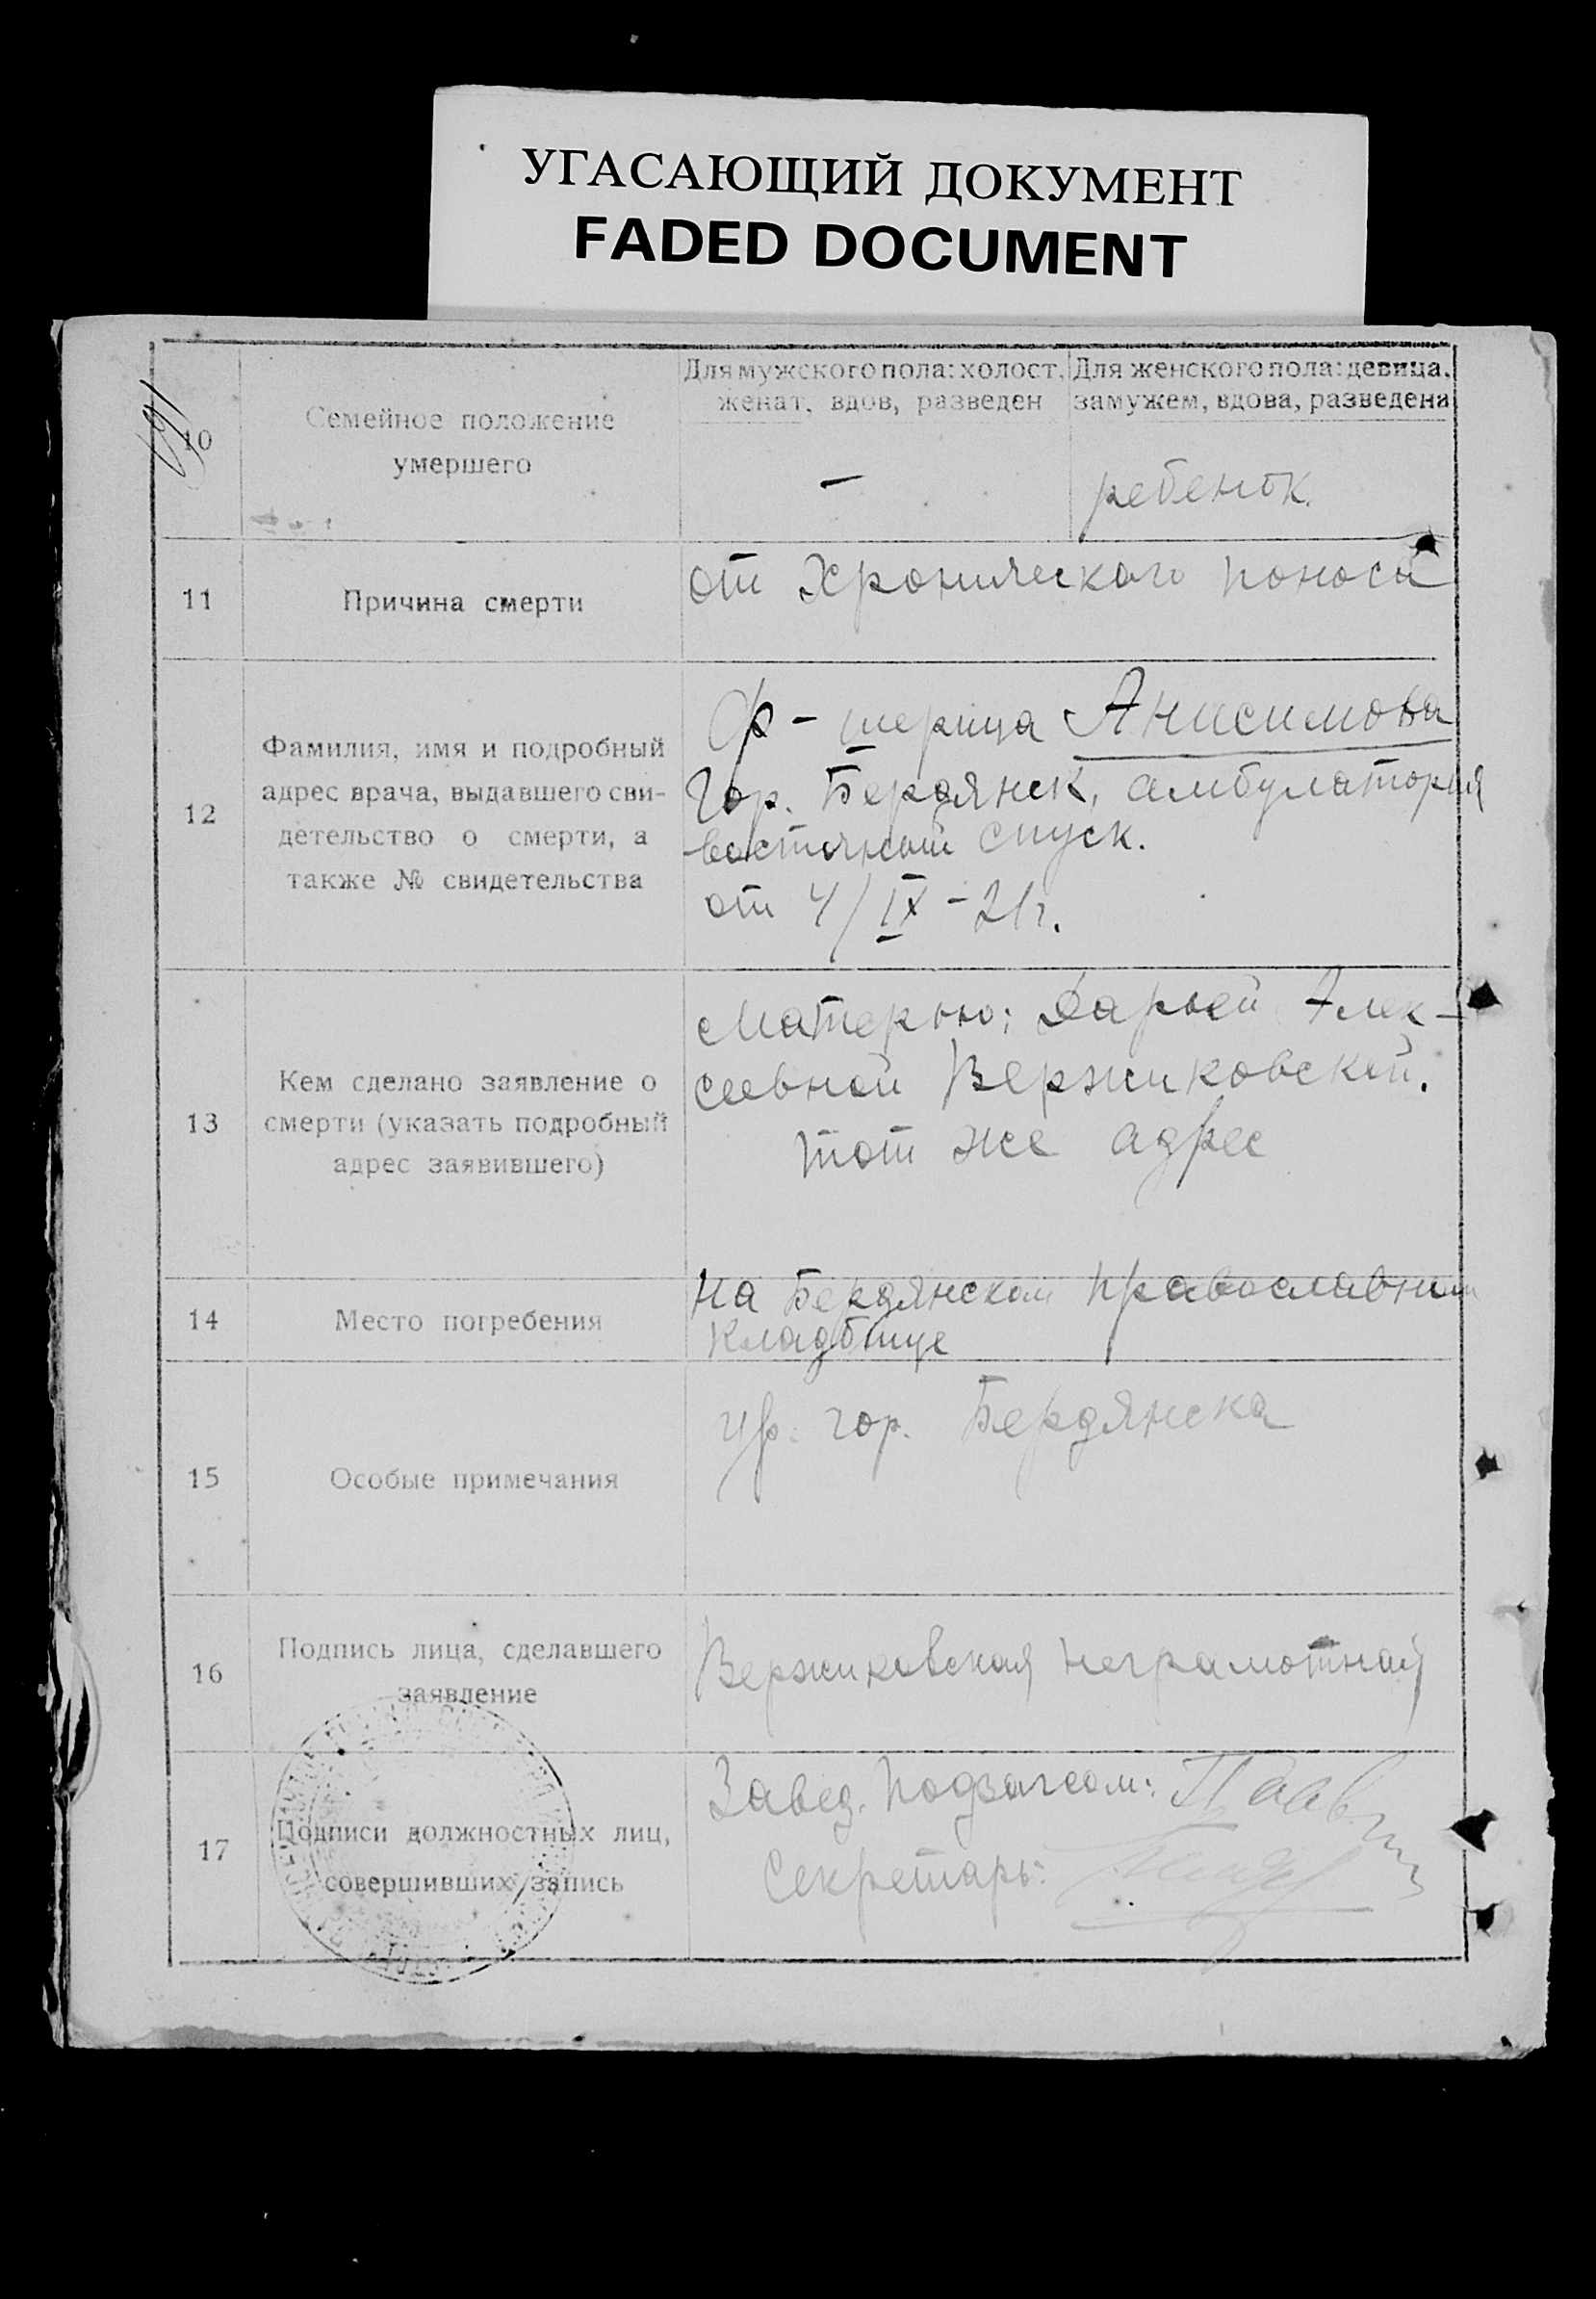 УГАСАЮЩИЙ ДОКУМЕНТ
FADED DOCUMENT
10
Семейное положение
умершего
Для мужского пола: холост,
женат, вдов, разведен
Для женского пола: девица,
замужем, вдова, разведена
—
ребенок.
11
Причина смерти
от Хронического поноса
12
Фамилия, имя и подробный
адрес врача, выдавшего сви-
детельство о смерти, а
также № свидетельства
Ф-шерица Анисимова
Гор. Бердянск, амбулатория
восточный спуск.
от 4/IX-21г.
13
Кем сделано заявление о
смерти (указать подробный
адрес заявившего)
Матерью: Дарьей Алек-
сеевной Вержиковской.
тот же адрес
14
Место погребения
на Бердянском православном
кладбище
15
Особые примечания
гр. гор. Бердянска
16
Подпись лица, сделавшего
заявление
Вержиковская неграмотная
17
Подписи должностных лиц,
совершивших запись
Завед. подзагсом:
Секретарь: